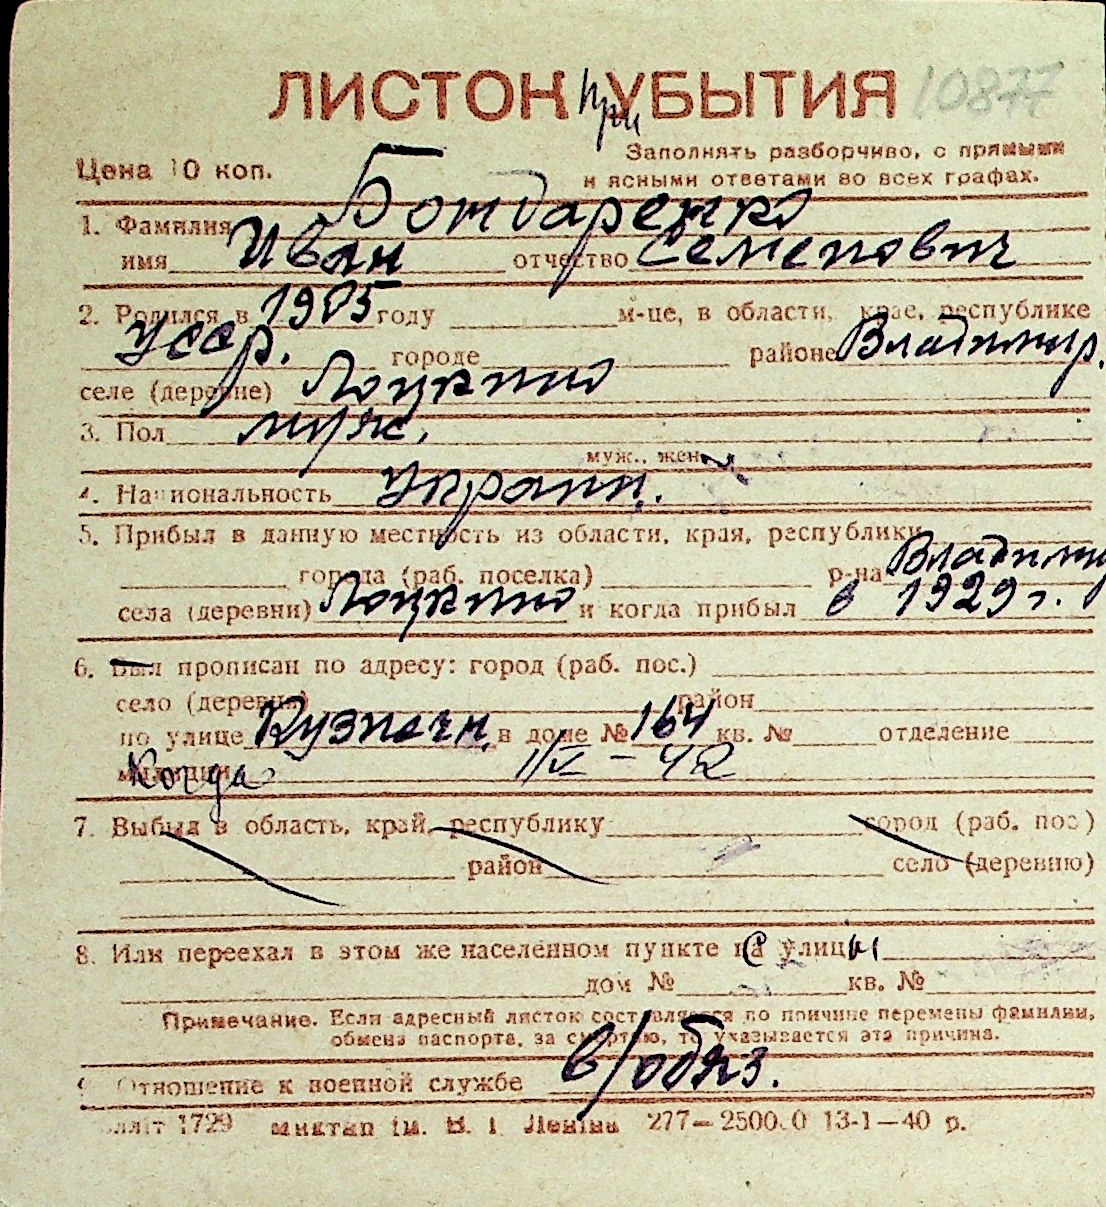 ЛИСТОК при УБЫТИЯ 10877
Цена 10 коп. Заполнять разборчиво, с прямыми
и ясными ответами во всех графах.
1. Фамилия Бондаренко
имя Иван отчество Семенович
2. Родился в 1905 году м-це, в области, крае, республике
УССР. городе районе Владимир.
селе (деревне) Лоцкино
3. Пол муж.
муж., жен.
4. Национальность Украин.
5. Прибыл в данную местность из области, края, республики
города (раб. поселка) р-на Владимир
села (деревни) Лоцкино и когда прибыл в 1929 г.
6. Был прописан по адресу: город (раб. пос.)
село (деревня) район
по улице Кузнечн. в доме № 164 кв. № отделение
милиции Когда 1/V - 42
7. Выбыл в область, край, республику город (раб. пос)
район село (деревню)
8. Или переехал в этом же населенном пункте с улицы
дом № кв. №
Примечание. Если адресный листок составляется по причине перемены фамилии,
обмена паспорта, за смертью, то указывается эта причина.
9. Отношение к военной службе в/обяз.
1729 им. В. И. Ленина 277—2500.0 13-1—40 р.